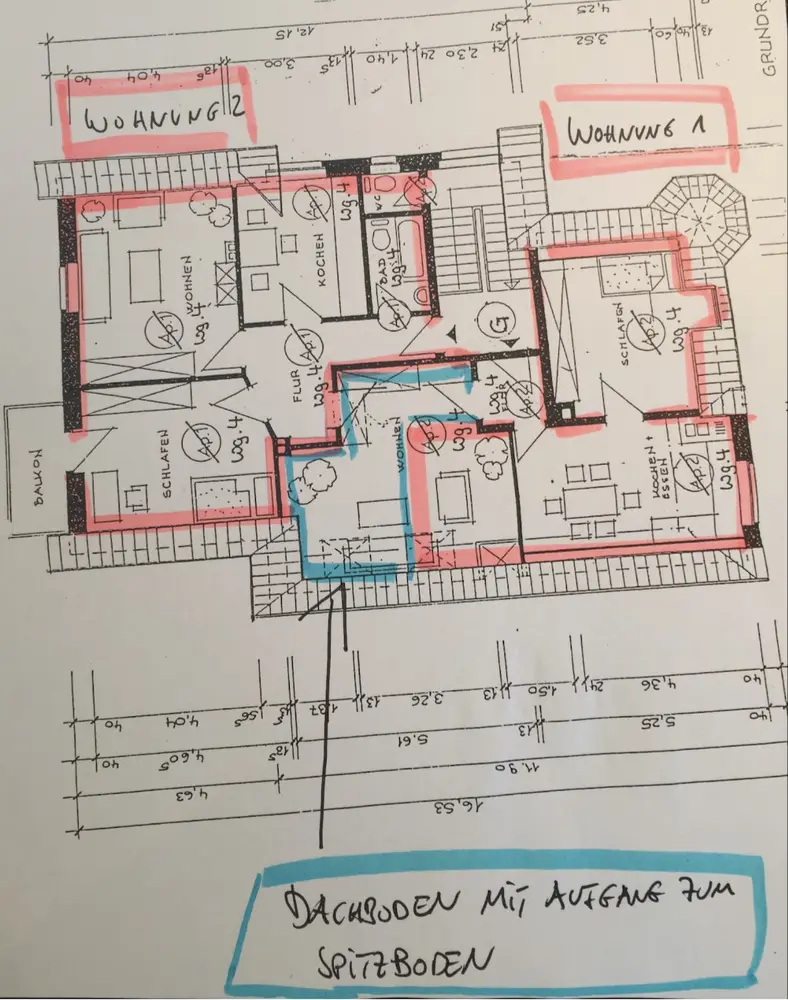 4,25
12,15
51
GRUNDR
40
4,04
13⁵
3,00
13⁵
1,40
24
2,30
24
3,52
60
40
13
WOHNUNG 2
WOHNUNG 1
WC
Wg.4
Ap.1
Wg.4
KOCHEN
BAD
Wg.4
Ap.1
WOHNEN
Ap.1
Wg.4
SCHLAFEN
Ap.2
Wg.4
G
FLUR
Ap.1
Wg.4
Wg.4
FLUR
Ap.2
BALKON
SCHLAFEN
Ap.1
Wg.4
WOHNEN
Ap.2
Wg.4
KOCHEN +
ESSEN
Ap.2
Wg.4
40
4,04
56⁵
1,37
13
3,26
13
1,50
24
4,36
40
40
4,60⁵
13⁵
5,61
13
5,25
40
4,63
11,90
16,53
DACHBODEN MIT AUFGANG ZUM
SPITZBODEN